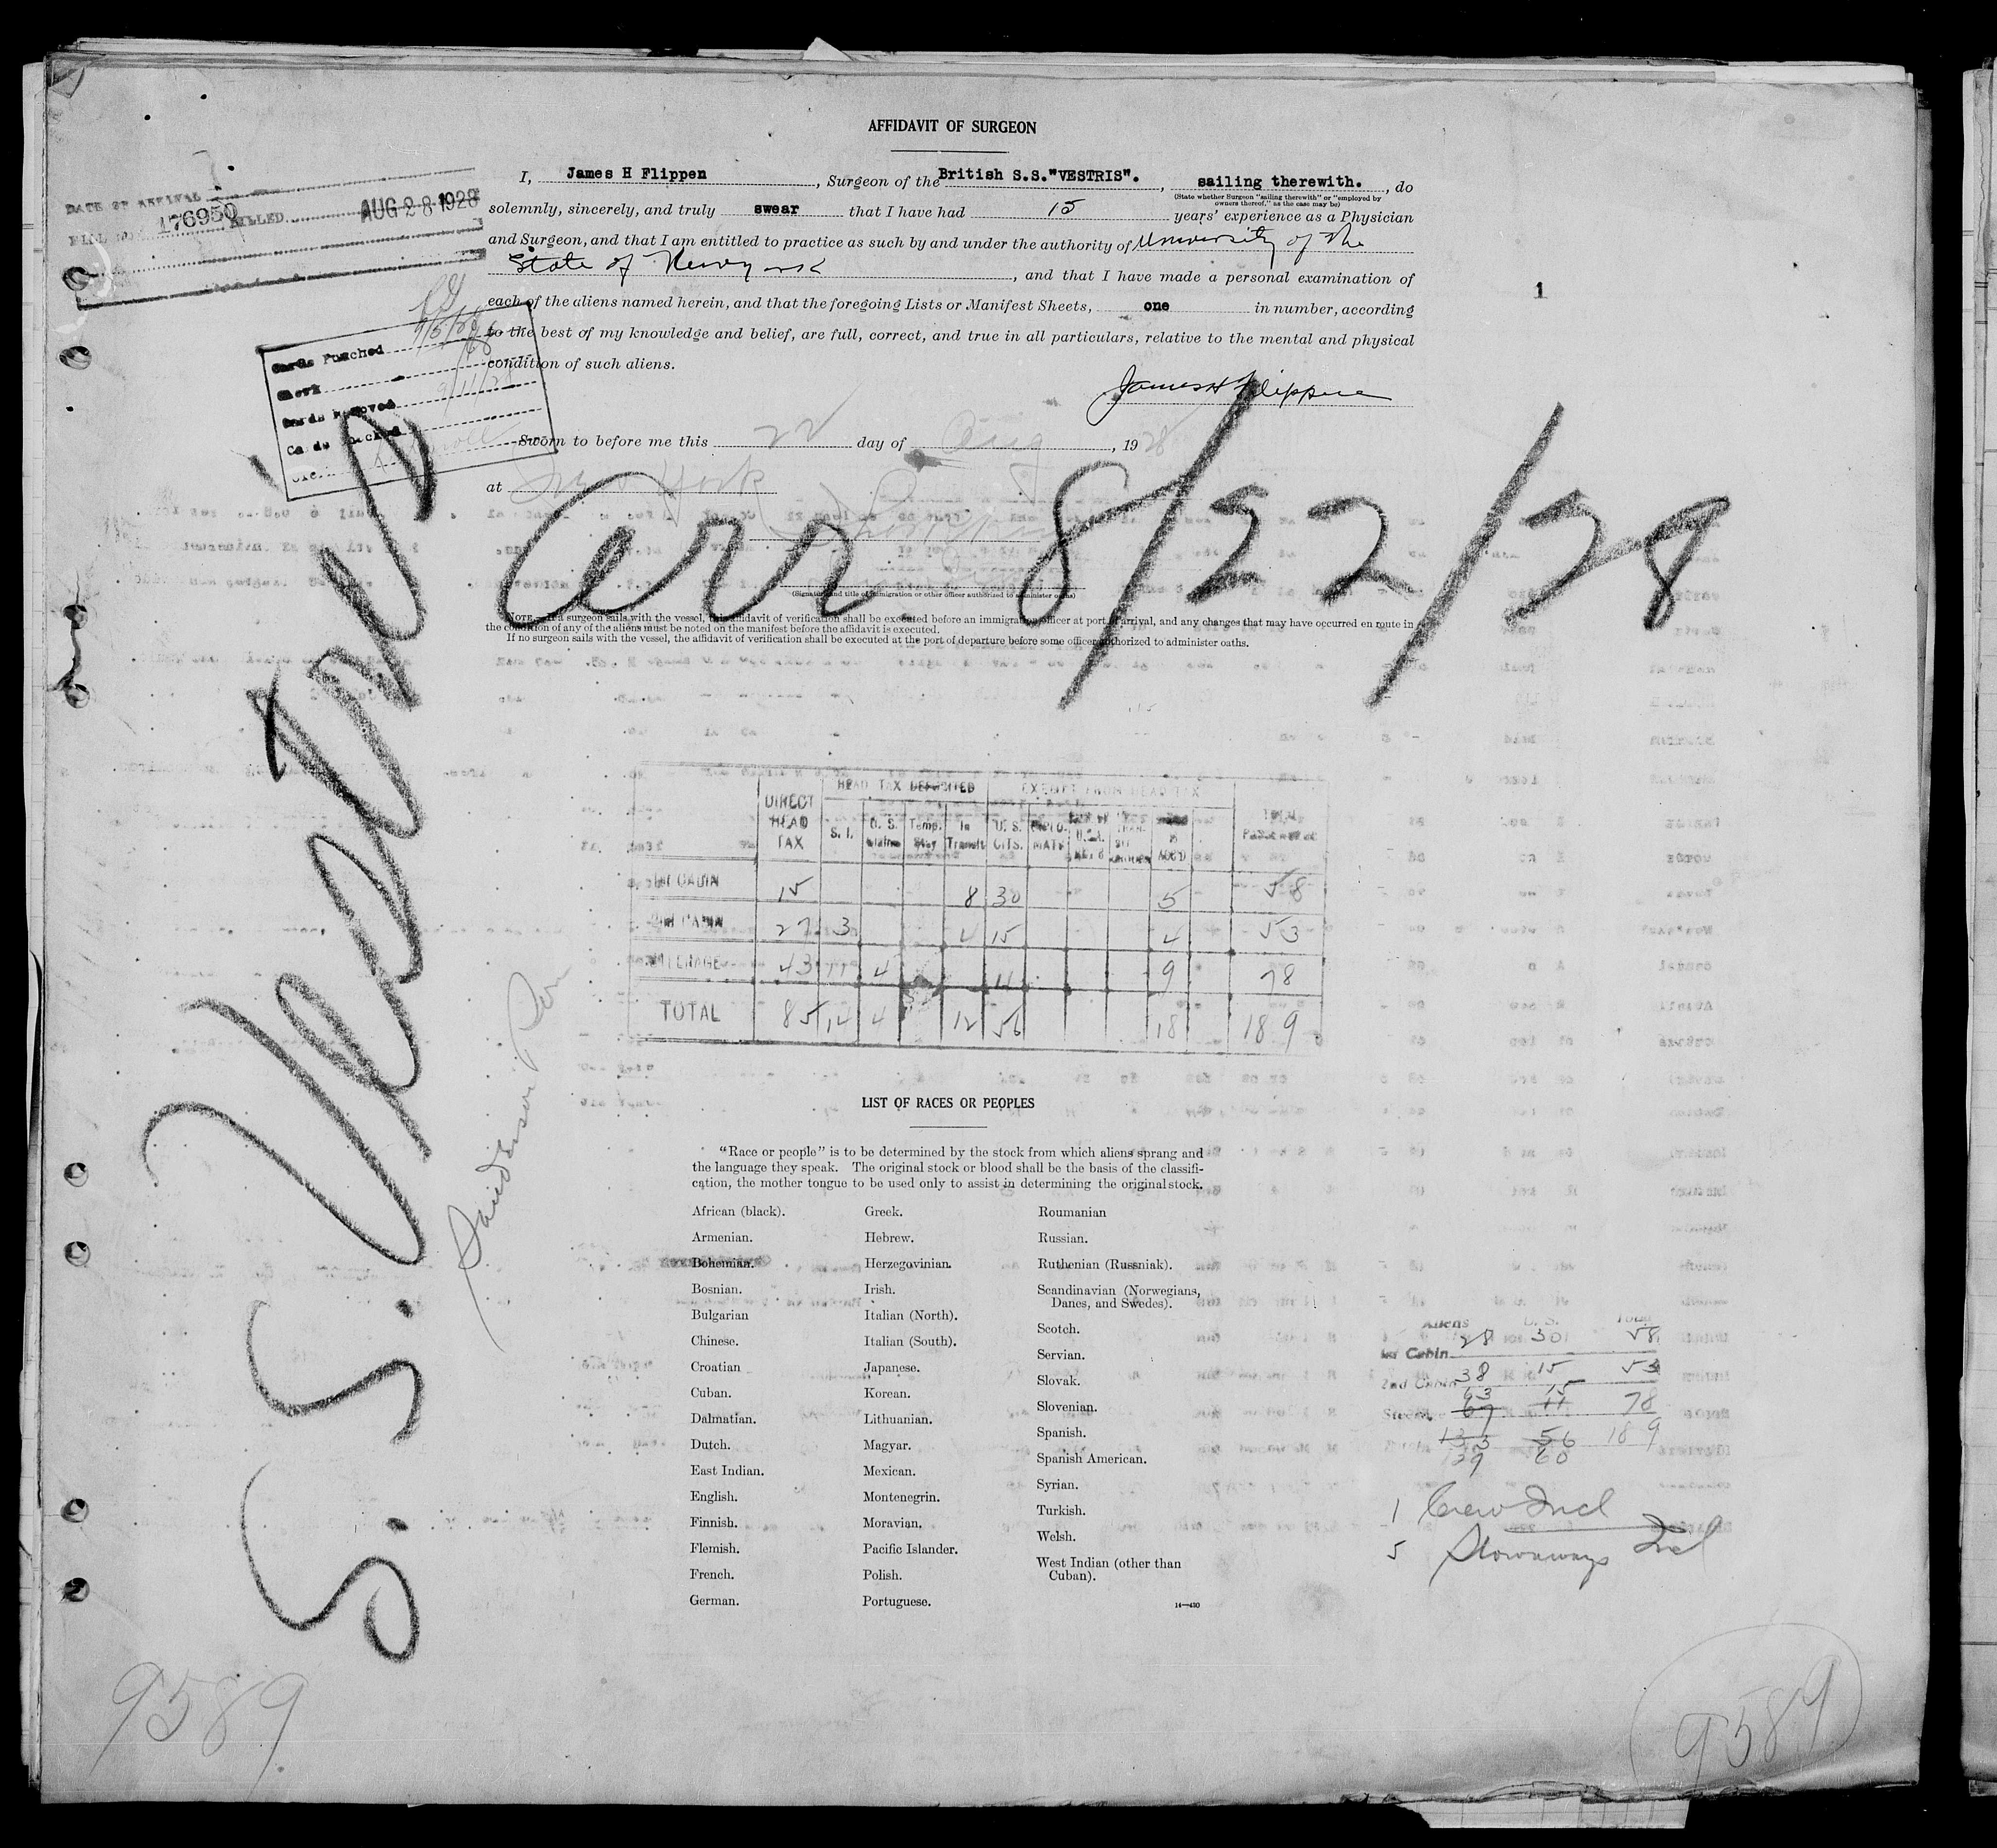 AFFIDAVIT OF SURGEON
I, James H Flippen, Surgeon of the British S.S."VESTRIS"., sailing therewith., do
(State whether Surgeon "sailing therewith" or "employed by
owners thereof," as the case may be)
solemnly, sincerely, and truly swear that I have had 15 years' experience as a Physician
and Surgeon, and that I am entitled to practice as such by and under the authority of University of the
State of Newyork, and that I have made a personal examination of
each of the aliens named herein, and that the foregoing Lists or Manifest Sheets, one in number, according
to the best of my knowledge and belief, are full, correct, and true in all particulars, relative to the mental and physical
condition of such aliens.
James H Flippen
Sworn to before me this 22 day of Aug, 1928
at New York
(Signature and title of immigration or other officer authorized to administer oaths)
NOTE.—If a surgeon sails with the vessel, this affidavit of verification shall be executed before an immigration officer at port of arrival, and any changes that may have occurred en route in
the condition of any of the aliens must be noted on the manifest before the affidavit is executed.
If no surgeon sails with the vessel, the affidavit of verification shall be executed at the port of departure before some officer authorized to administer oaths.
DATE OF ARRIVAL
FILE NO. 176950 FILLED AUG 28 1928
Cards Punched
Cards Removed
9/11/28
1
Arr 8/22/28
S.S. Vestris
DIRECT HEAD TAX
HEAD TAX DEPOSITED
EXEMPT FROM HEAD TAX
S. I. U. S. Temp. Stay In Transit U. S. CITS. DIPLO-MATS
1st CABIN 15 8 30 5 58
2nd CABIN 27 3 4 15 4 53
STEERAGE 43 11 4 11 9 78
TOTAL 85 14 4 12 56 18 189
LIST OF RACES OR PEOPLES
"Race or people" is to be determined by the stock from which aliens sprang and
the language they speak. The original stock or blood shall be the basis of the classifi-
cation, the mother tongue to be used only to assist in determining the original stock.
African (black).
Armenian.
Bohemian.
Bosnian.
Bulgarian
Chinese.
Croatian
Cuban.
Dalmatian.
Dutch.
East Indian.
English.
Finnish.
Flemish.
French.
German.
Greek.
Hebrew.
Herzegovinian.
Irish.
Italian (North).
Italian (South).
Japanese.
Korean.
Lithuanian.
Magyar.
Mexican.
Montenegrin.
Moravian.
Pacific Islander.
Polish.
Portuguese.
Roumanian
Russian.
Ruthenian (Russniak).
Scandinavian (Norwegians,
Danes, and Swedes).
Scotch.
Servian.
Slovak.
Slovenian.
Spanish.
Spanish American.
Syrian.
Turkish.
Welsh.
West Indian (other than
Cuban).
14—430
Aliens U. S. Total
1st Cabin 28 30 58
2nd Cabin 38 15 53
63 15
Steerage 67 11 78
133 56 189
129 60
1 Crew Incl
5 Stowaways Incl
9589
9589